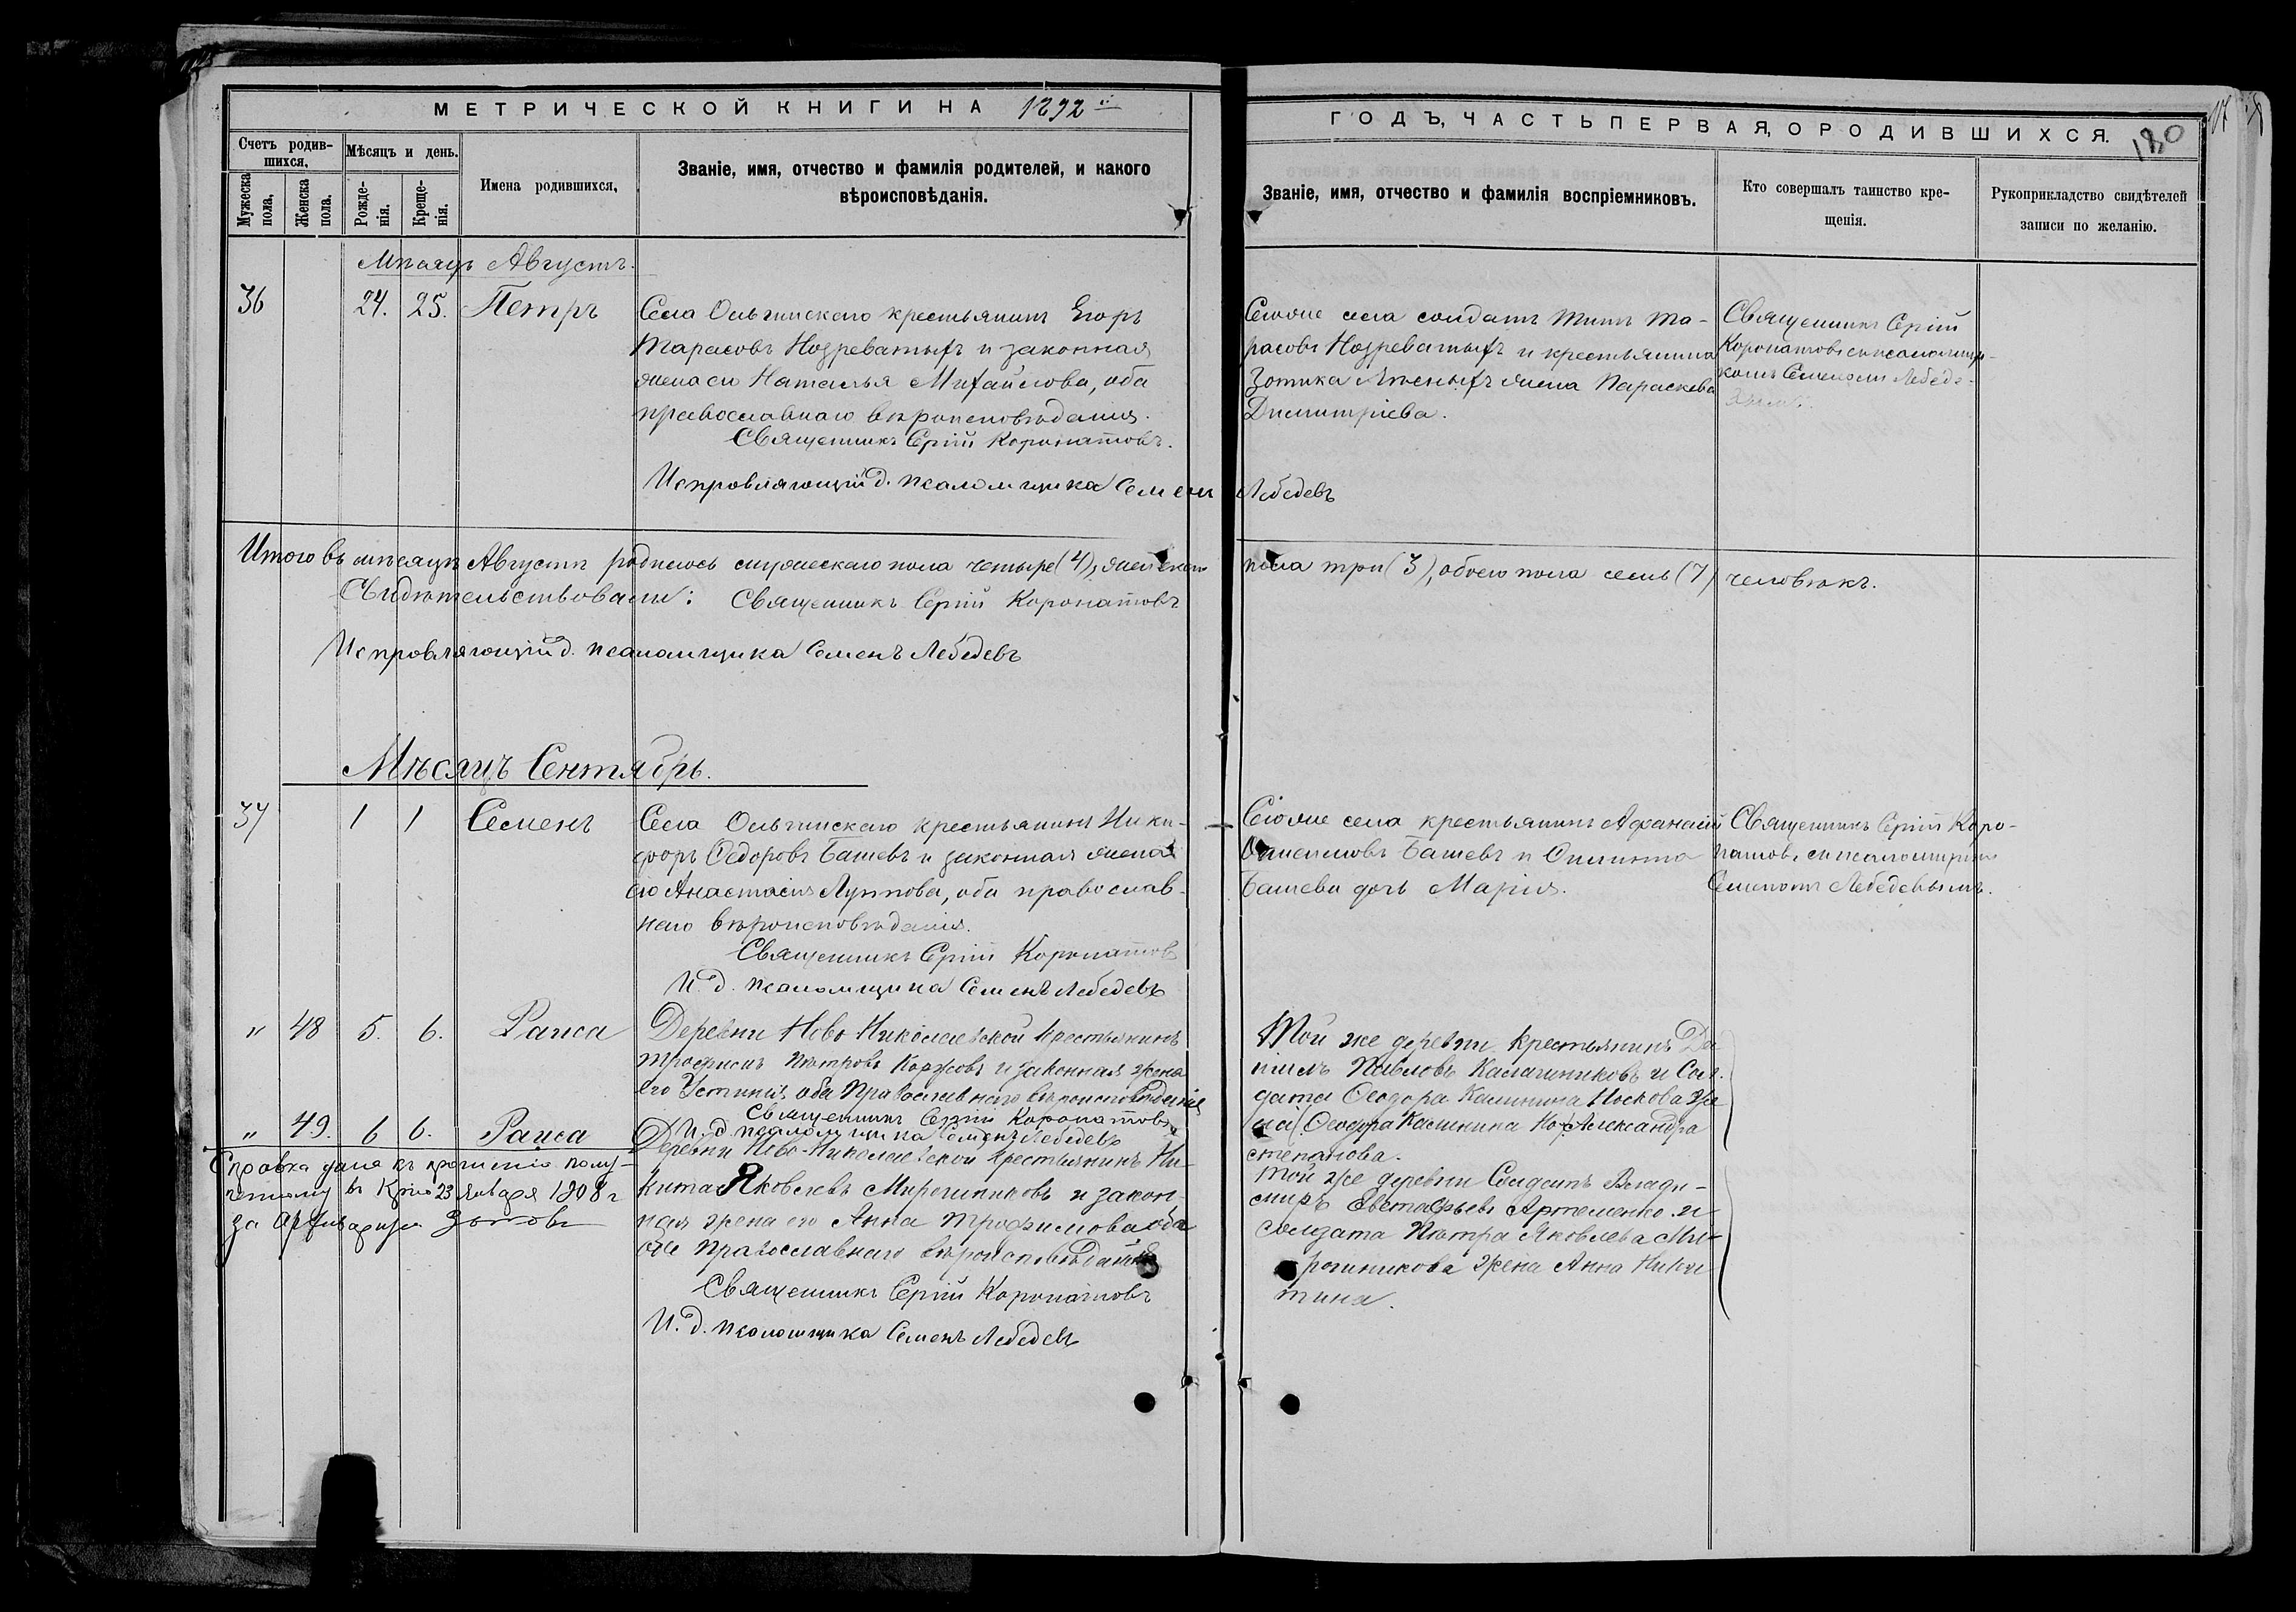 МЕТРИЧЕСКОЙ КНИГИ НА 1892
ГОДЪ, ЧАСТЬ ПЕРВАЯ, О РОДИВШИХСЯ.
180
Счетъ родив-
шихся,
Мѣсяцъ и день.
Мужеска
пола.
Женска
пола.
Рожде-
нія.
Креще-
нія.
Имена родившихся,
Званіе, имя, отчество и фамилія родителей, и какого
вѣроисповѣданія.
Званіе, имя, отчество и фамилія воспріемниковъ.
Кто совершалъ таинство кре-
щенія.
Рукоприкладство свидѣтелей
записи по желанію.
Мѣсяцъ Августъ.
36 24. 25. Петръ
Села Ольгинскаго крестьянинъ Егоръ
Тарасовъ Ноздреватыхъ и законная
жена его Наталья Михайлова, оба
православнаго вѣроисповѣданія.
Священникъ Сергій Коронатовъ.
Исправляющій д. псаломщика Семенъ Лебедевъ
Тогоже села солдатъ Титъ Та-
расовъ Ноздреватыхъ и крестьянина
Зотика жена Параскева
Димитріева.
Священникъ Сергій
Коронатовъ съ псаломщи-
комъ Семеномъ Лебеде-
Итого въ мѣсяцѣ Августѣ родилось мужескаго пола четыре (4), женскаго пола три (3), обоего пола семь (7) человѣкъ.
Свидѣтельствовали: Священникъ Сергій Коронатовъ
Исправляющій д. псаломщика Семенъ Лебедевъ
Мѣсяцъ Сентябрь.
37 1 1 Семенъ
Села Ольгинскаго крестьянинъ Ники-
форъ Ѳедоровъ Башевъ и законная жена
его Анастасія Луппова, оба православ-
наго вѣроисповѣданія.
Священникъ Сергій Коронатовъ
И. д. псаломщика Семенъ Лебедевъ
Тогоже села крестьянинъ Аѳанасій
Башевъ и
Башева дочь Марія.
Священникъ Сергій Коро-
натовъ съ псаломщикомъ
Семеномъ Лебедевымъ.
" 48 5. 6. Раиса
Деревни Ново-Николаевской крестьянинъ
Трофимъ Петровъ Коржовъ и законная жена
его Устинія, оба Православнаго вѣроисповѣданія
Священникъ Сергій Коронатовъ
И. д. псаломщика Семенъ Лебедевъ
Той же деревни крестьянинъ Да-
ніилъ Павловъ Калашниковъ и Сол-
дата Ѳеодора Калинина Носкова же-
на Ѳеодора Калинина Александра
Степанова.
" 49. 6 6. Раиса
Деревни Ново-Николаевской крестьянинъ Ни-
кита Яковлевъ Мирошниковъ и закон-
ная жена его Анна Трофимова, оба
Православнаго вѣроисповѣданія
Священникъ Сергій Коронатовъ
И. д. псаломщика Семенъ Лебедевъ
Той же деревни Солдатъ Влади-
миръ Евстафьевъ Артеменко и
солдата Петра Яковлева Ми-
рошникова жена Анна Ники-
тина.
Справка дана къ прошенію полу-
ченному въ 23 Января 1908 г
за Архиваріуса Зотовъ